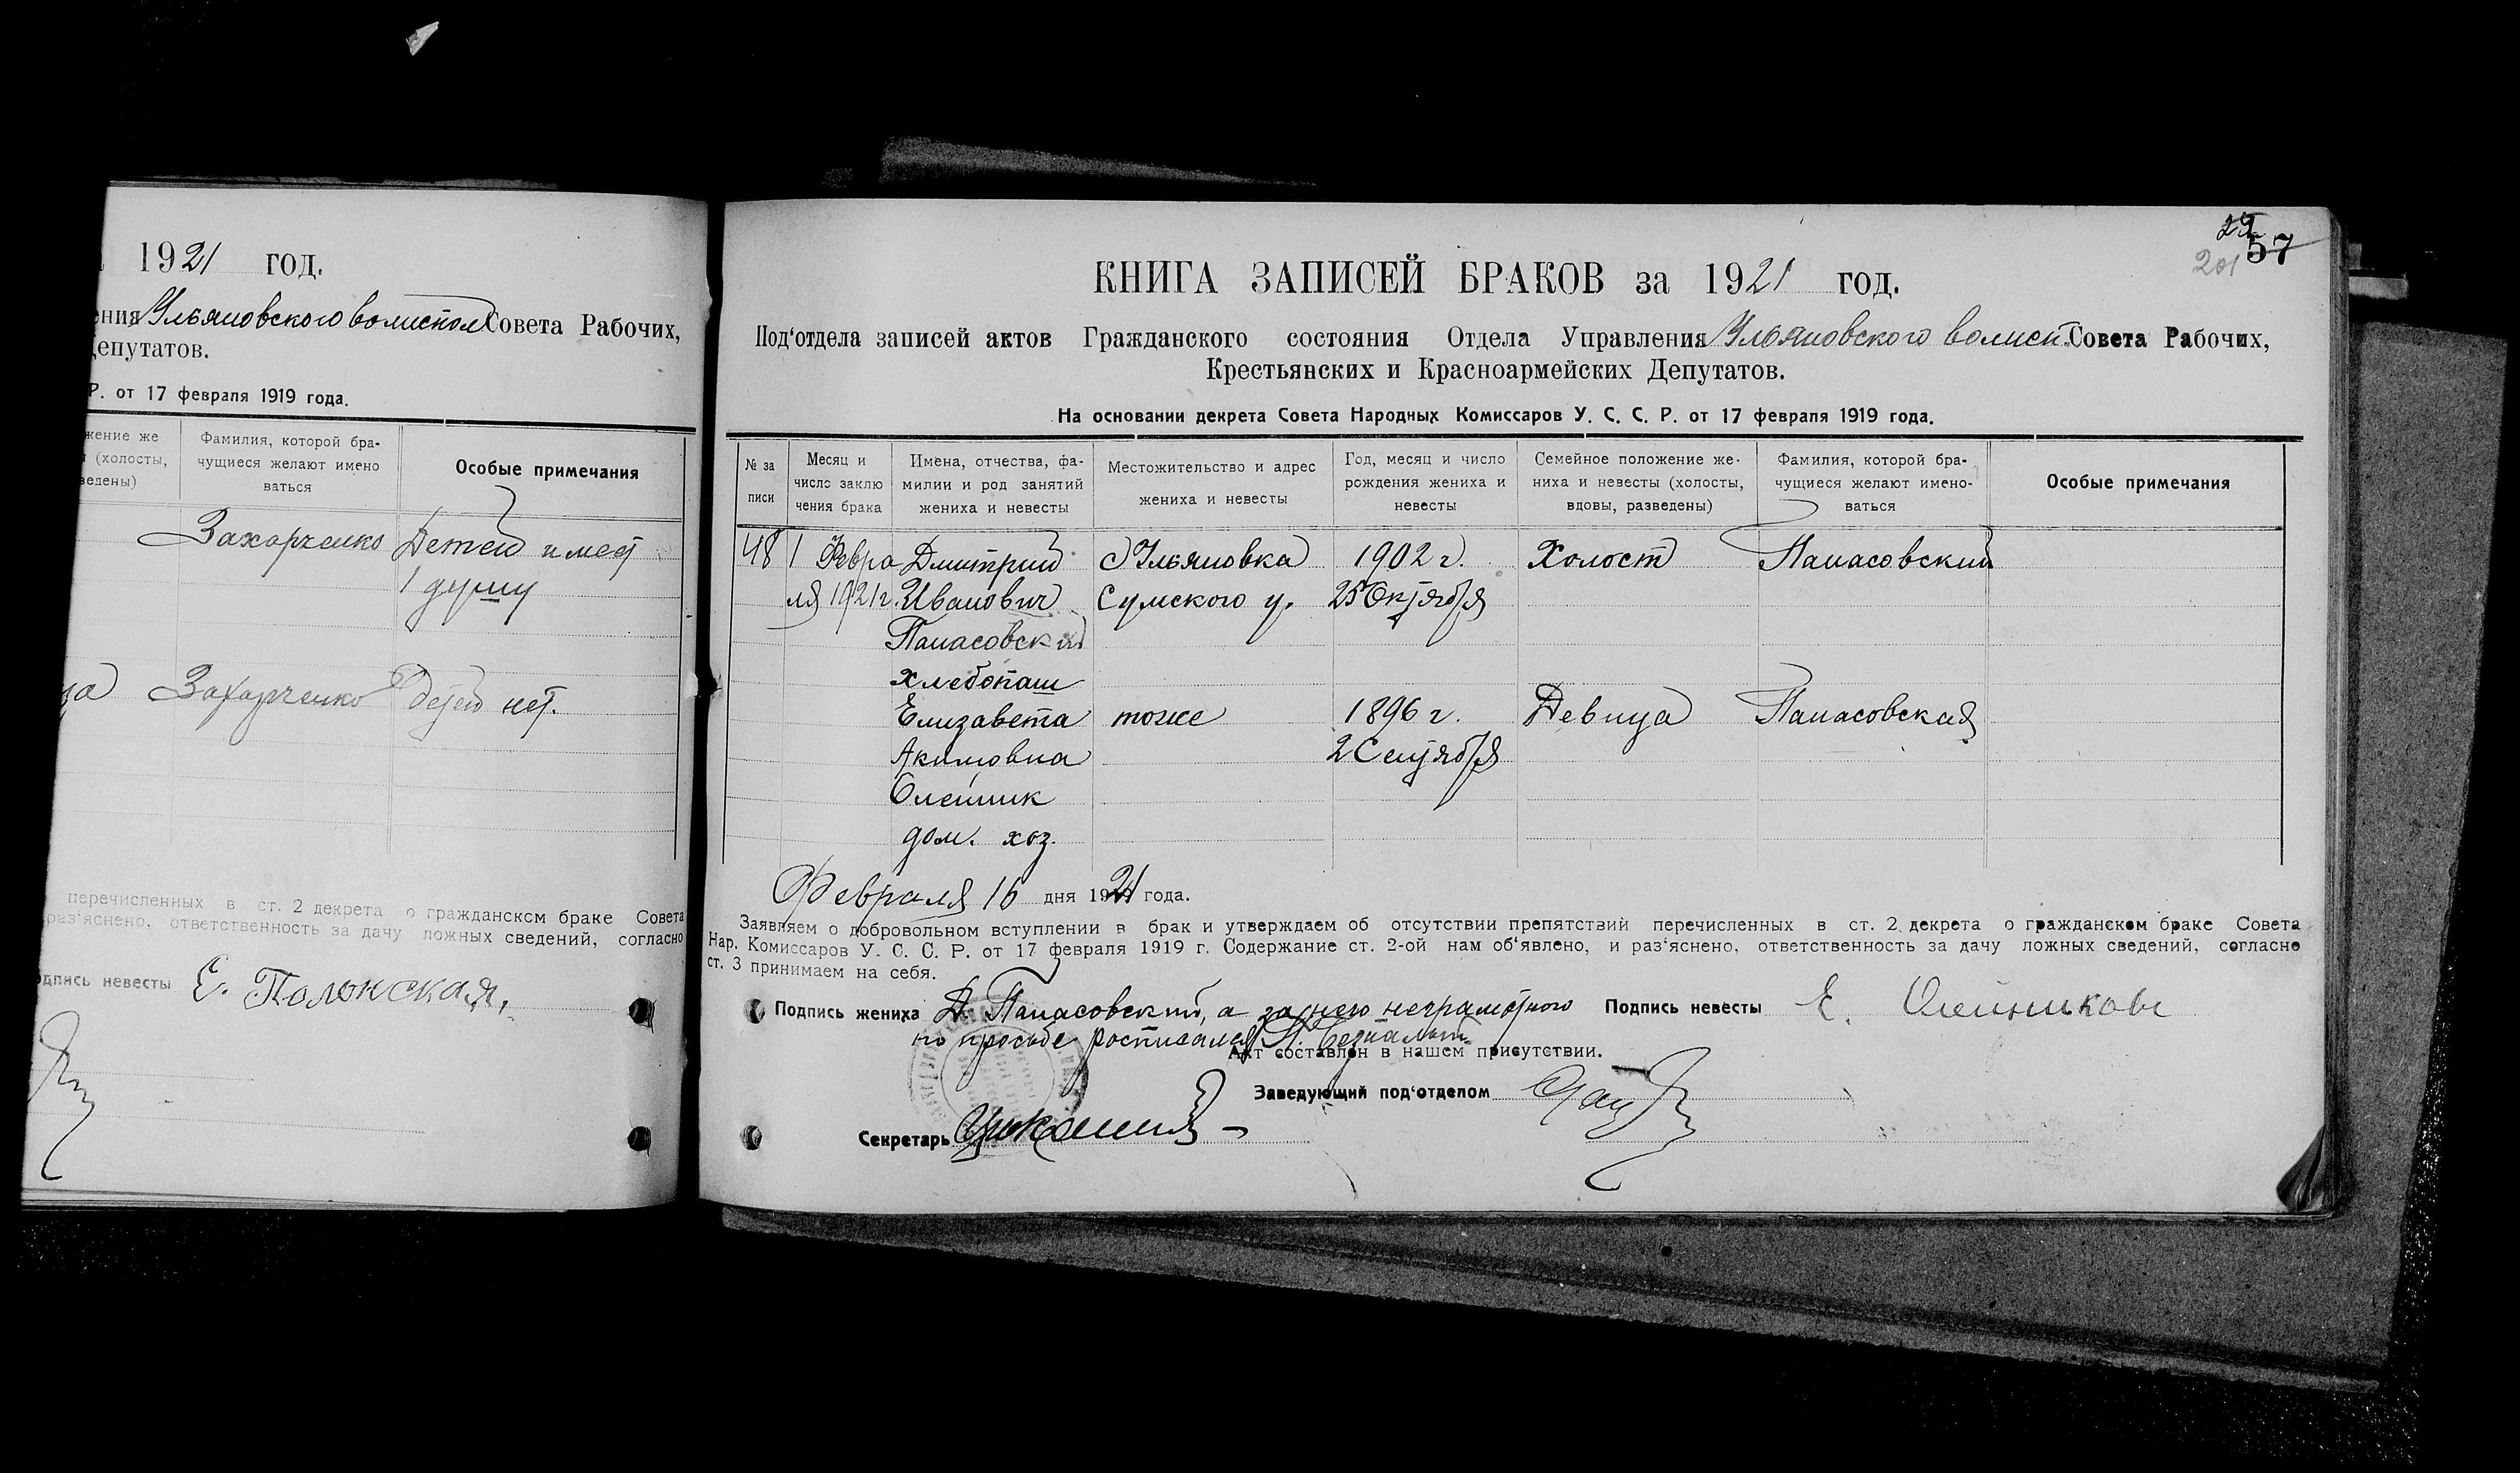 1921 год.
ения Ульяновского волиспол Совета Рабочих,
Депутатов.
Р. от 17 февраля 1919 года.
жение же
(холосты,
ведены)
Фамилия, которой бра-
чущиеся желают имено
ваться
Особые примечания
Захарченко Детей имеет
1 душу
ца Захарченко детей нет.
перечисленных в ст. 2 декрета о гражданском браке Совета
раз‘яснено, ответственность за дачу ложных сведений, согласно
одпись невесты Е. Полонская,
29
201 57
КНИГА ЗАПИСЕЙ БРАКОВ за 1921 год.
Под‘отдела записей актов Гражданского состояния Отдела Управления Ульяновского волисп. Совета Рабочих,
Крестьянских и Красноармейских Депутатов.
На основании декрета Совета Народных Комиссаров У. С. С. Р. от 17 февраля 1919 года.
№ за
писи
Месяц и
число заклю
чения брака
Имена, отчества, фа-
милии и род занятий
жениха и невесты
Местожительство и адрес
жениха и невесты
Год, месяц и число
рождения жениха и
невесты
Семейное положение же-
ниха и невесты (холосты,
вдовы, разведены)
Фамилия, которой бра-
чущиеся желают имено-
ваться
Особые примечания
48 1 Февра Дмитрий с Ульяновка 1902 г. Холост Панасовский
ля 1921 г. Иванович Сумского у. 25 Октября
Панасовский
хлебопаш
Елизавета тоже 1896 г. Девица Панасовская
Акимовна 2 Сентября
Олейник
дом. хоз.
Февраля 16 дня 1921 года.
Заявляем о добровольном вступлении в брак и утверждаем об отсутствии препятствий перечисленных в ст. 2 декрета о гражданском браке Совета
Нар. Комиссаров У. С. С. Р. от 17 февраля 1919 г. Содержание ст. 2-ой нам об‘явлено, и раз‘яснено, ответственность за дачу ложных сведений, согласно
ст. 3 принимаем на себя.
Подпись жениха Д. Панасовский, а за него неграмотного Подпись невесты Е. Олейникова
по просьбе росписался
Акт составлен в нашем присутствии.
Заведующий под‘отделом
Секретарь